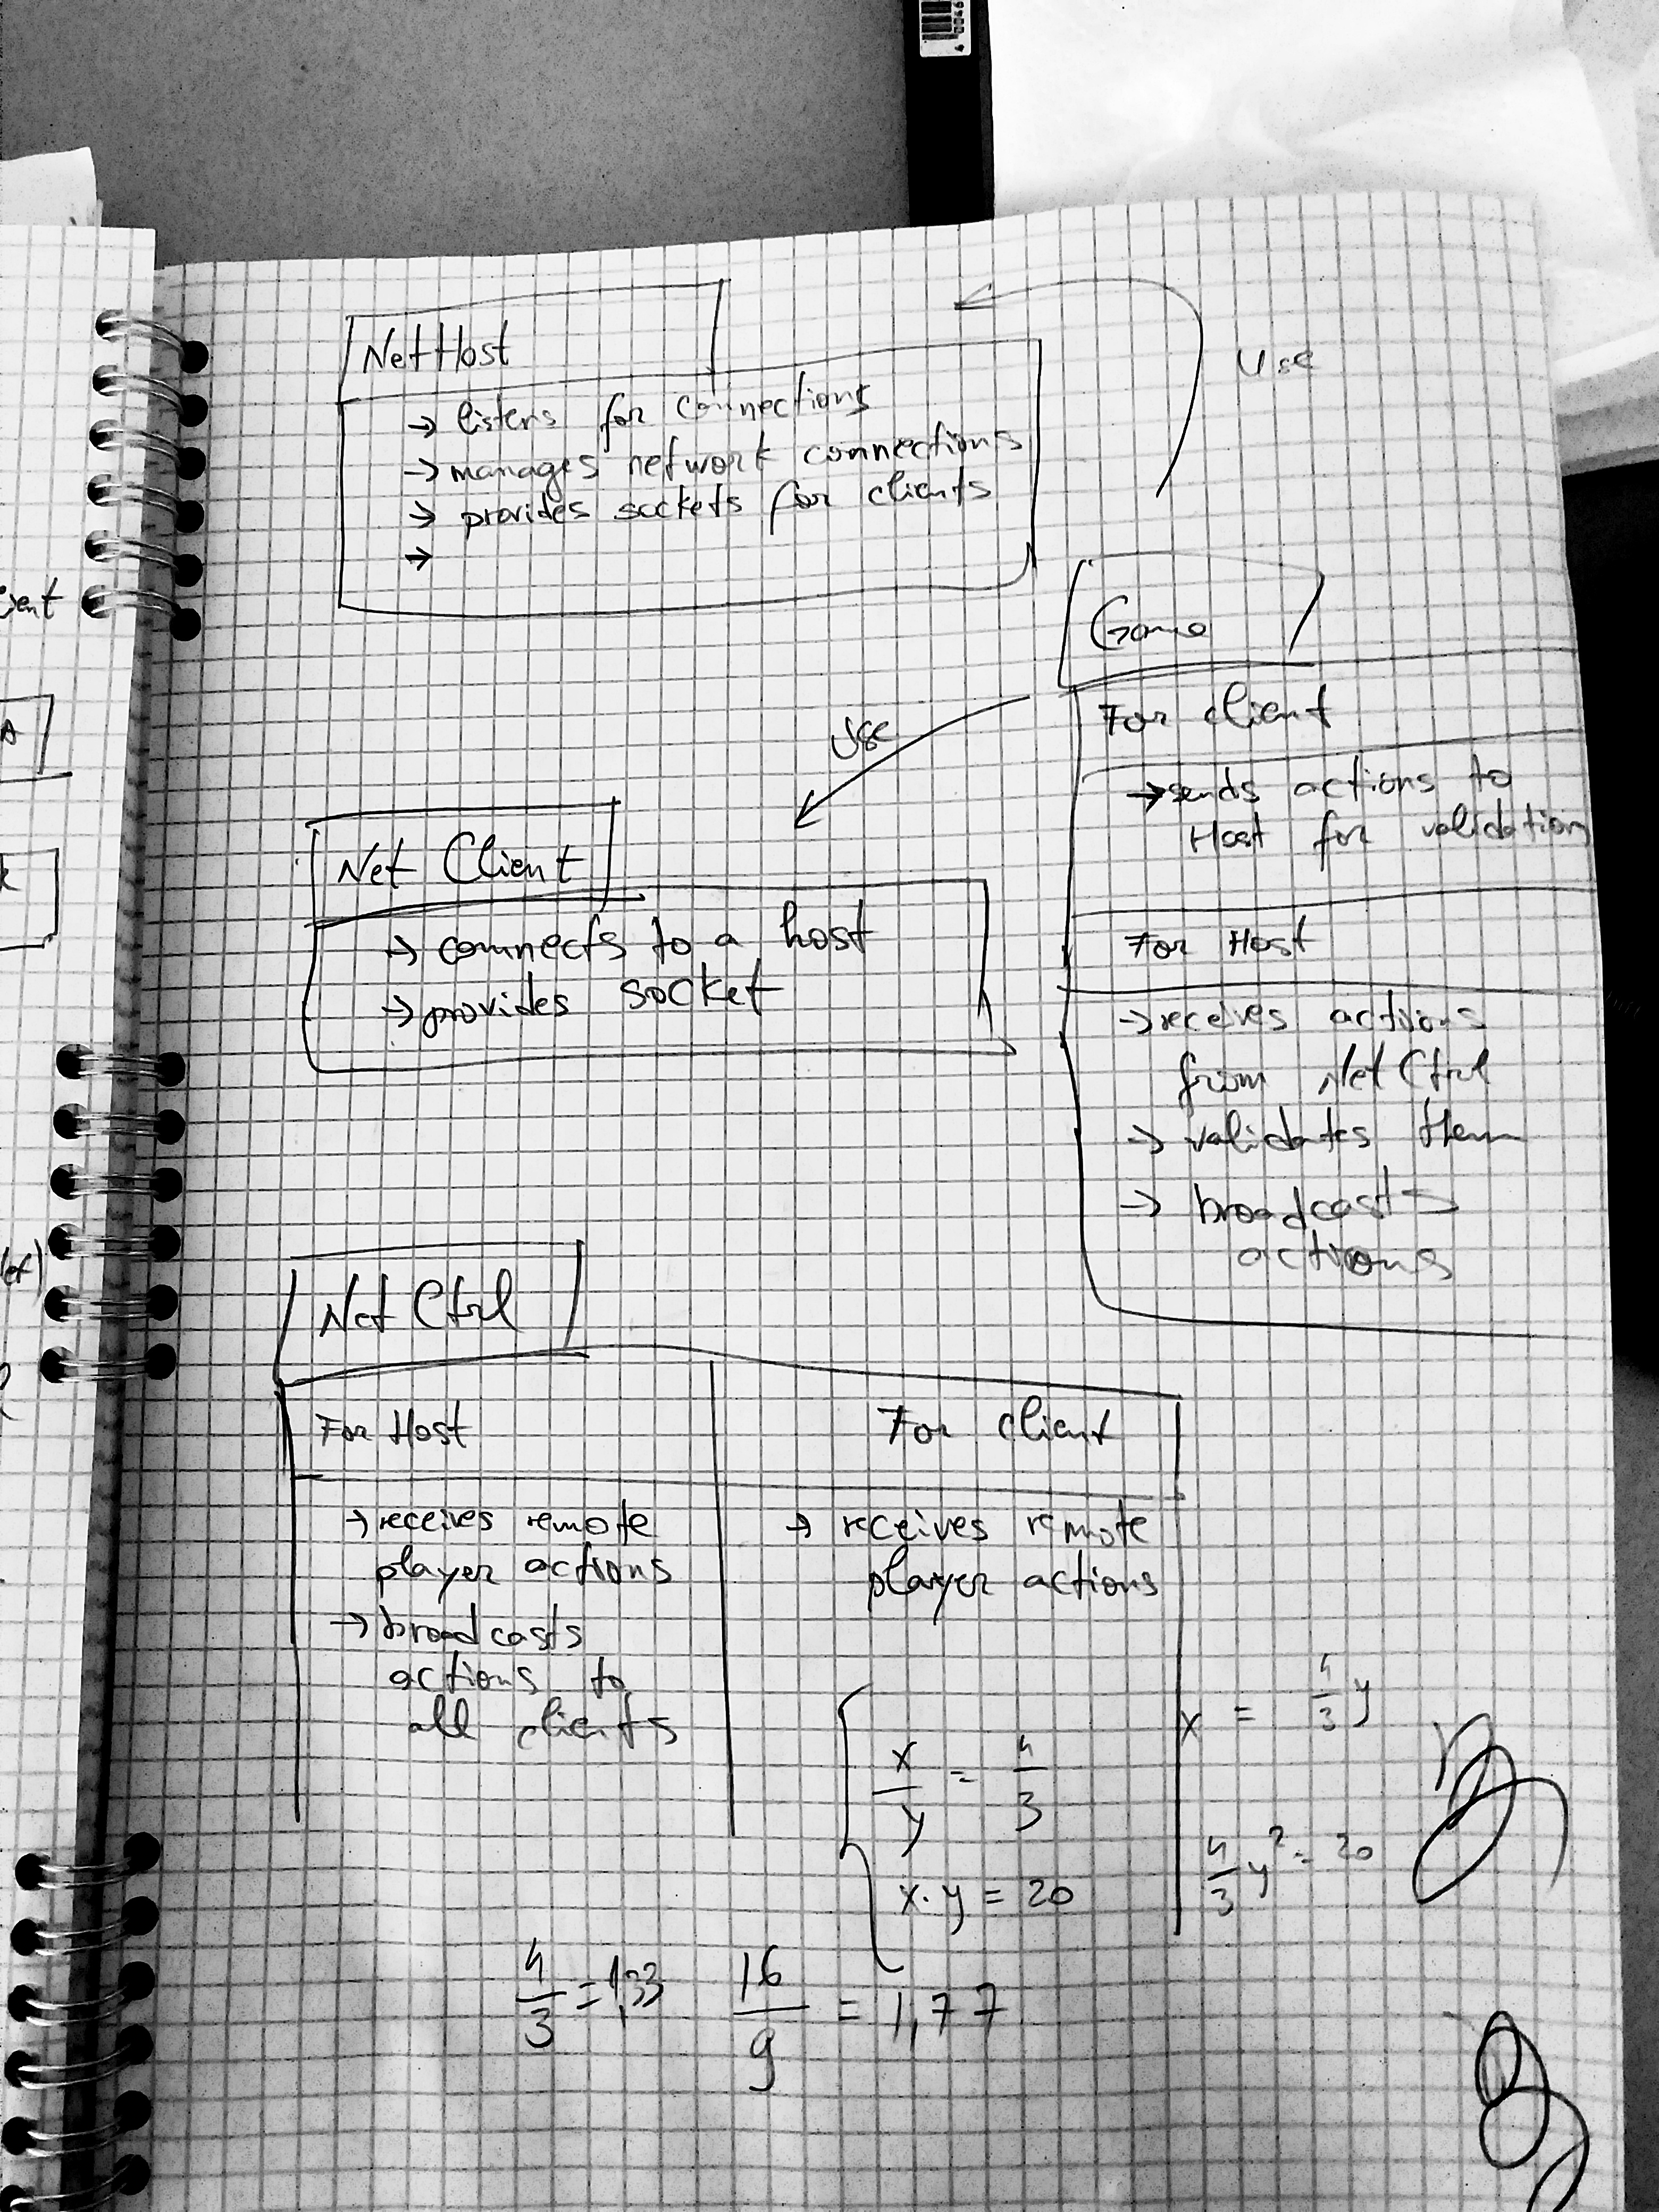 NetHost
→ listens for connections
→ manages network connections
→ provides sockets for clients
→
Use
Game
For client
→ sends actions to
Host for validation
For Host
→ receives actions
from Net Ctrl
→ validates them
→ broadcasts
actions
Use
Net Client
→ connects to a host
→ provides socket
Net Ctrl
For Host
→ receives remote
player actions
→ broadcasts
actions to
all clients
For client
→ receives remote
player actions
x/y = 4/3
x · y = 20
x = 4/3 y
4/3 y² = 20
4/3 = 1,33
16/9 = 1,77